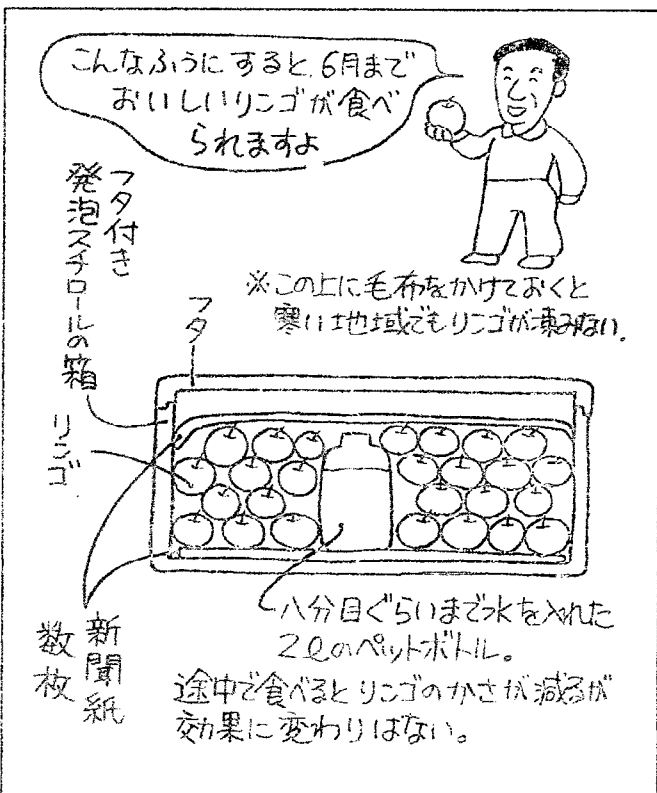 こんなふうにすると、6月まで
おいしいリンゴが食べ
られますよ
フタ付き
発泡スチロールの箱
※この上に毛布をかけておくと
寒い地域でもリンゴが凍みない。
フタ
リンゴ
新聞紙
数枚
八分目ぐらいまで水を入れた
2ℓのペットボトル。
途中で食べるとリンゴのかさが減るが
効果に変わりはない。